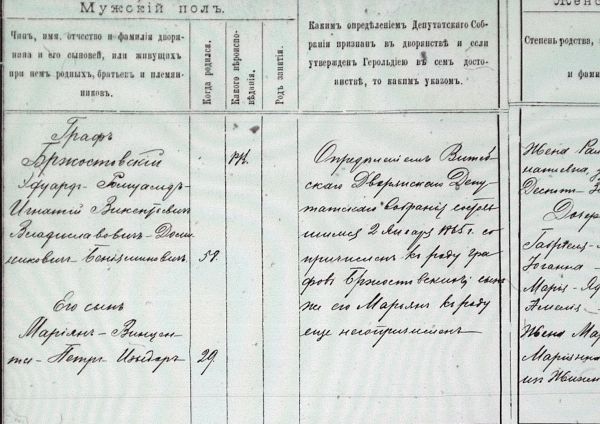 Мужскій полъ.
Чинъ, имя, отчество и фамилія дворя-
нина и его сыновей, или живущихъ
при немъ родныхъ, братьевъ и племян-
никовъ.
Когда родился.
Какого вѣроиспо-
вѣданія.
Родъ занятія.
Какимъ опредѣленіемъ Депутатскаго Соб-
ранія признанъ въ дворянствѣ и если
утвержденъ Герольдіею въ семъ досто-
инствѣ, то какимъ указомъ.
Женс
Степень родства,
и фами
Графъ
Бржостовскій
Эдуардъ-Ромуальдъ-
Игнатій Викентіевичъ
Владиславовичъ-Доми-
никовичъ
58.
Его сынъ
Маріянъ-Винцен-
тій-Петръ Изыдоръ
29
Р.К.
Опредѣленіемъ Витеб-
скаго Дворянскаго Депу-
татскаго Собранія состояв-
шимся 2 Января 1865 г. со-
причисленъ къ роду гра-
фовъ Бржостовскихъ; сынъ
же его Марьянъ къ роду
еще несопричисленъ
Жена
Деспотъ-З
Дочери
Габріеля-
Іоганна-
Марія-
Амелія-
Жена Мар
Маріянна